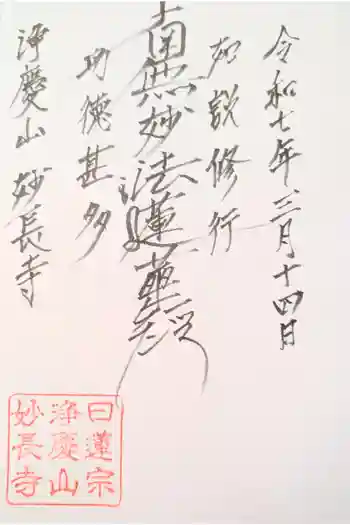 令和七年三月十四日
如説修行
南無妙法蓮華経
功徳甚多
浄慶山 妙長寺
日蓮宗
浄慶山
妙長寺